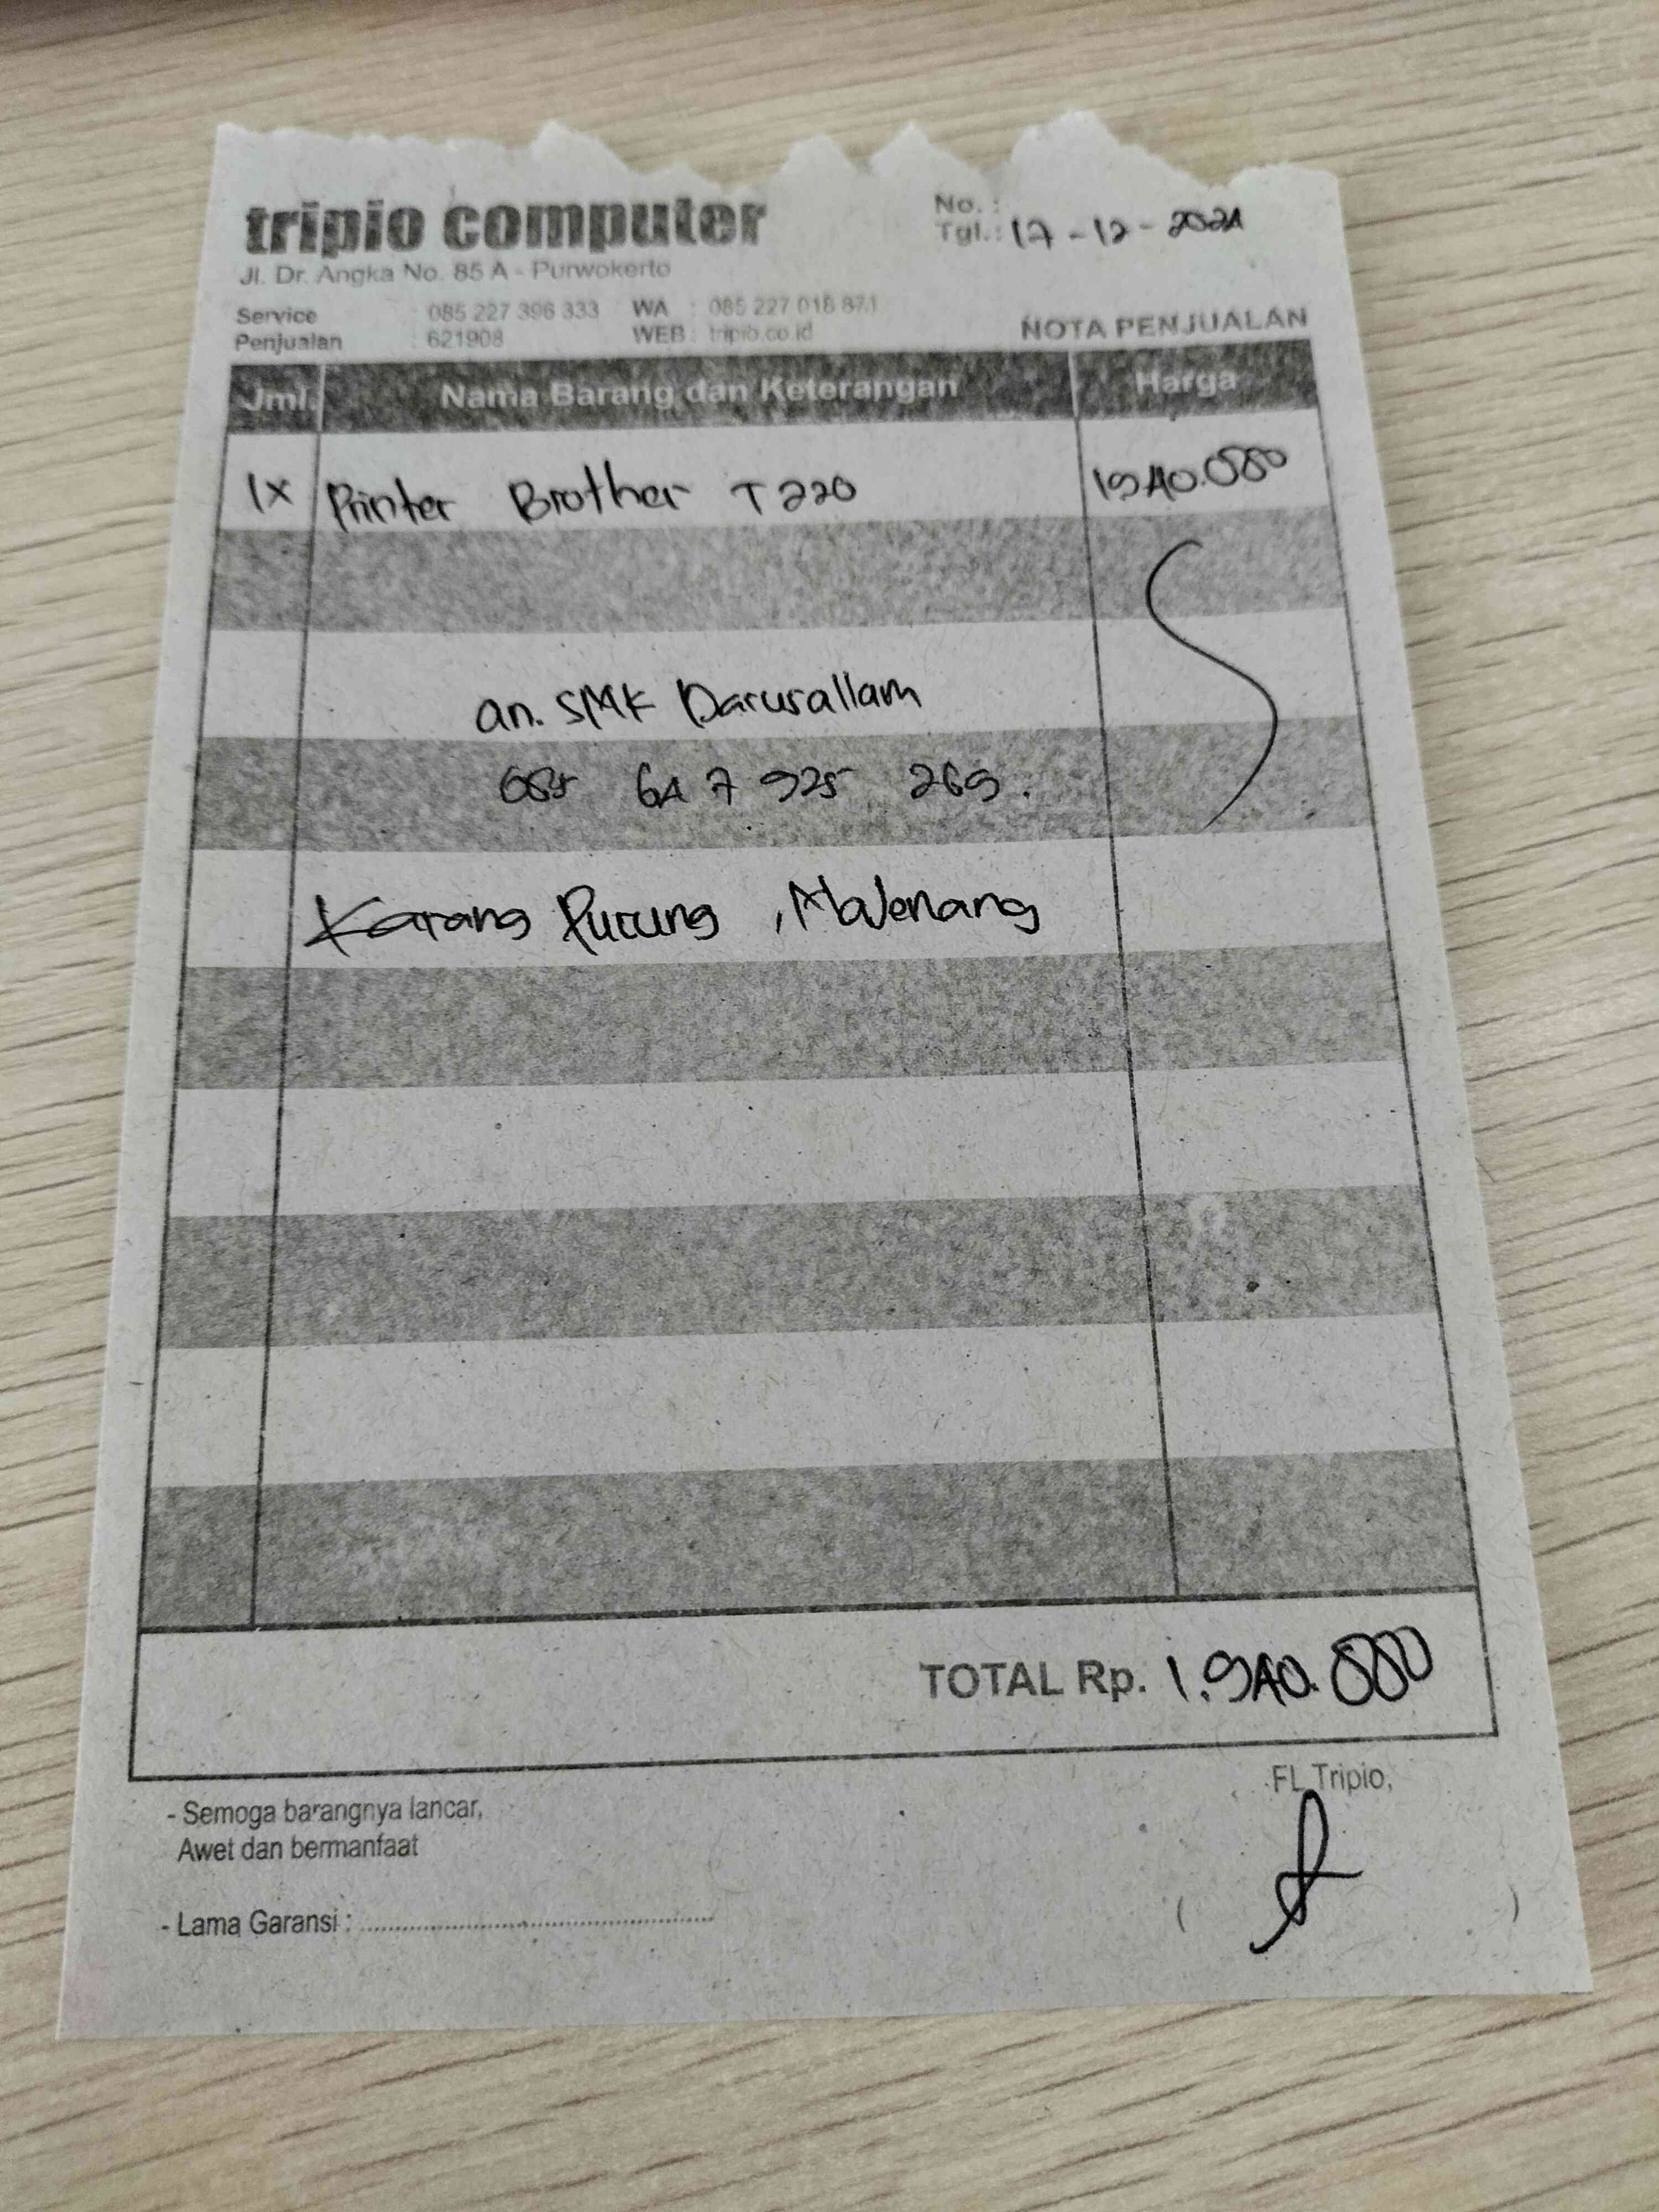 tripio computer
No. :
Tgl.: 17 - 12 - 2024
Jl. Dr. Angka No. 85 A - Purwokerto
Service : 085 227 396 333 WA : 085 227 018 871
Penjualan : 621908 WEB : tripio.co.id
NOTA PENJUALAN
Jml. Nama Barang dan Keterangan Harga
1x Printer Brother T220 1940.000
an. SMK Darusallam
085 647 925 269.
Karang Pucung , Majenang
TOTAL Rp. 1.940.000
FL Tripio,
- Semoga barangnya lancar,
Awet dan bermanfaat
- Lama Garansi : ........................................
( )